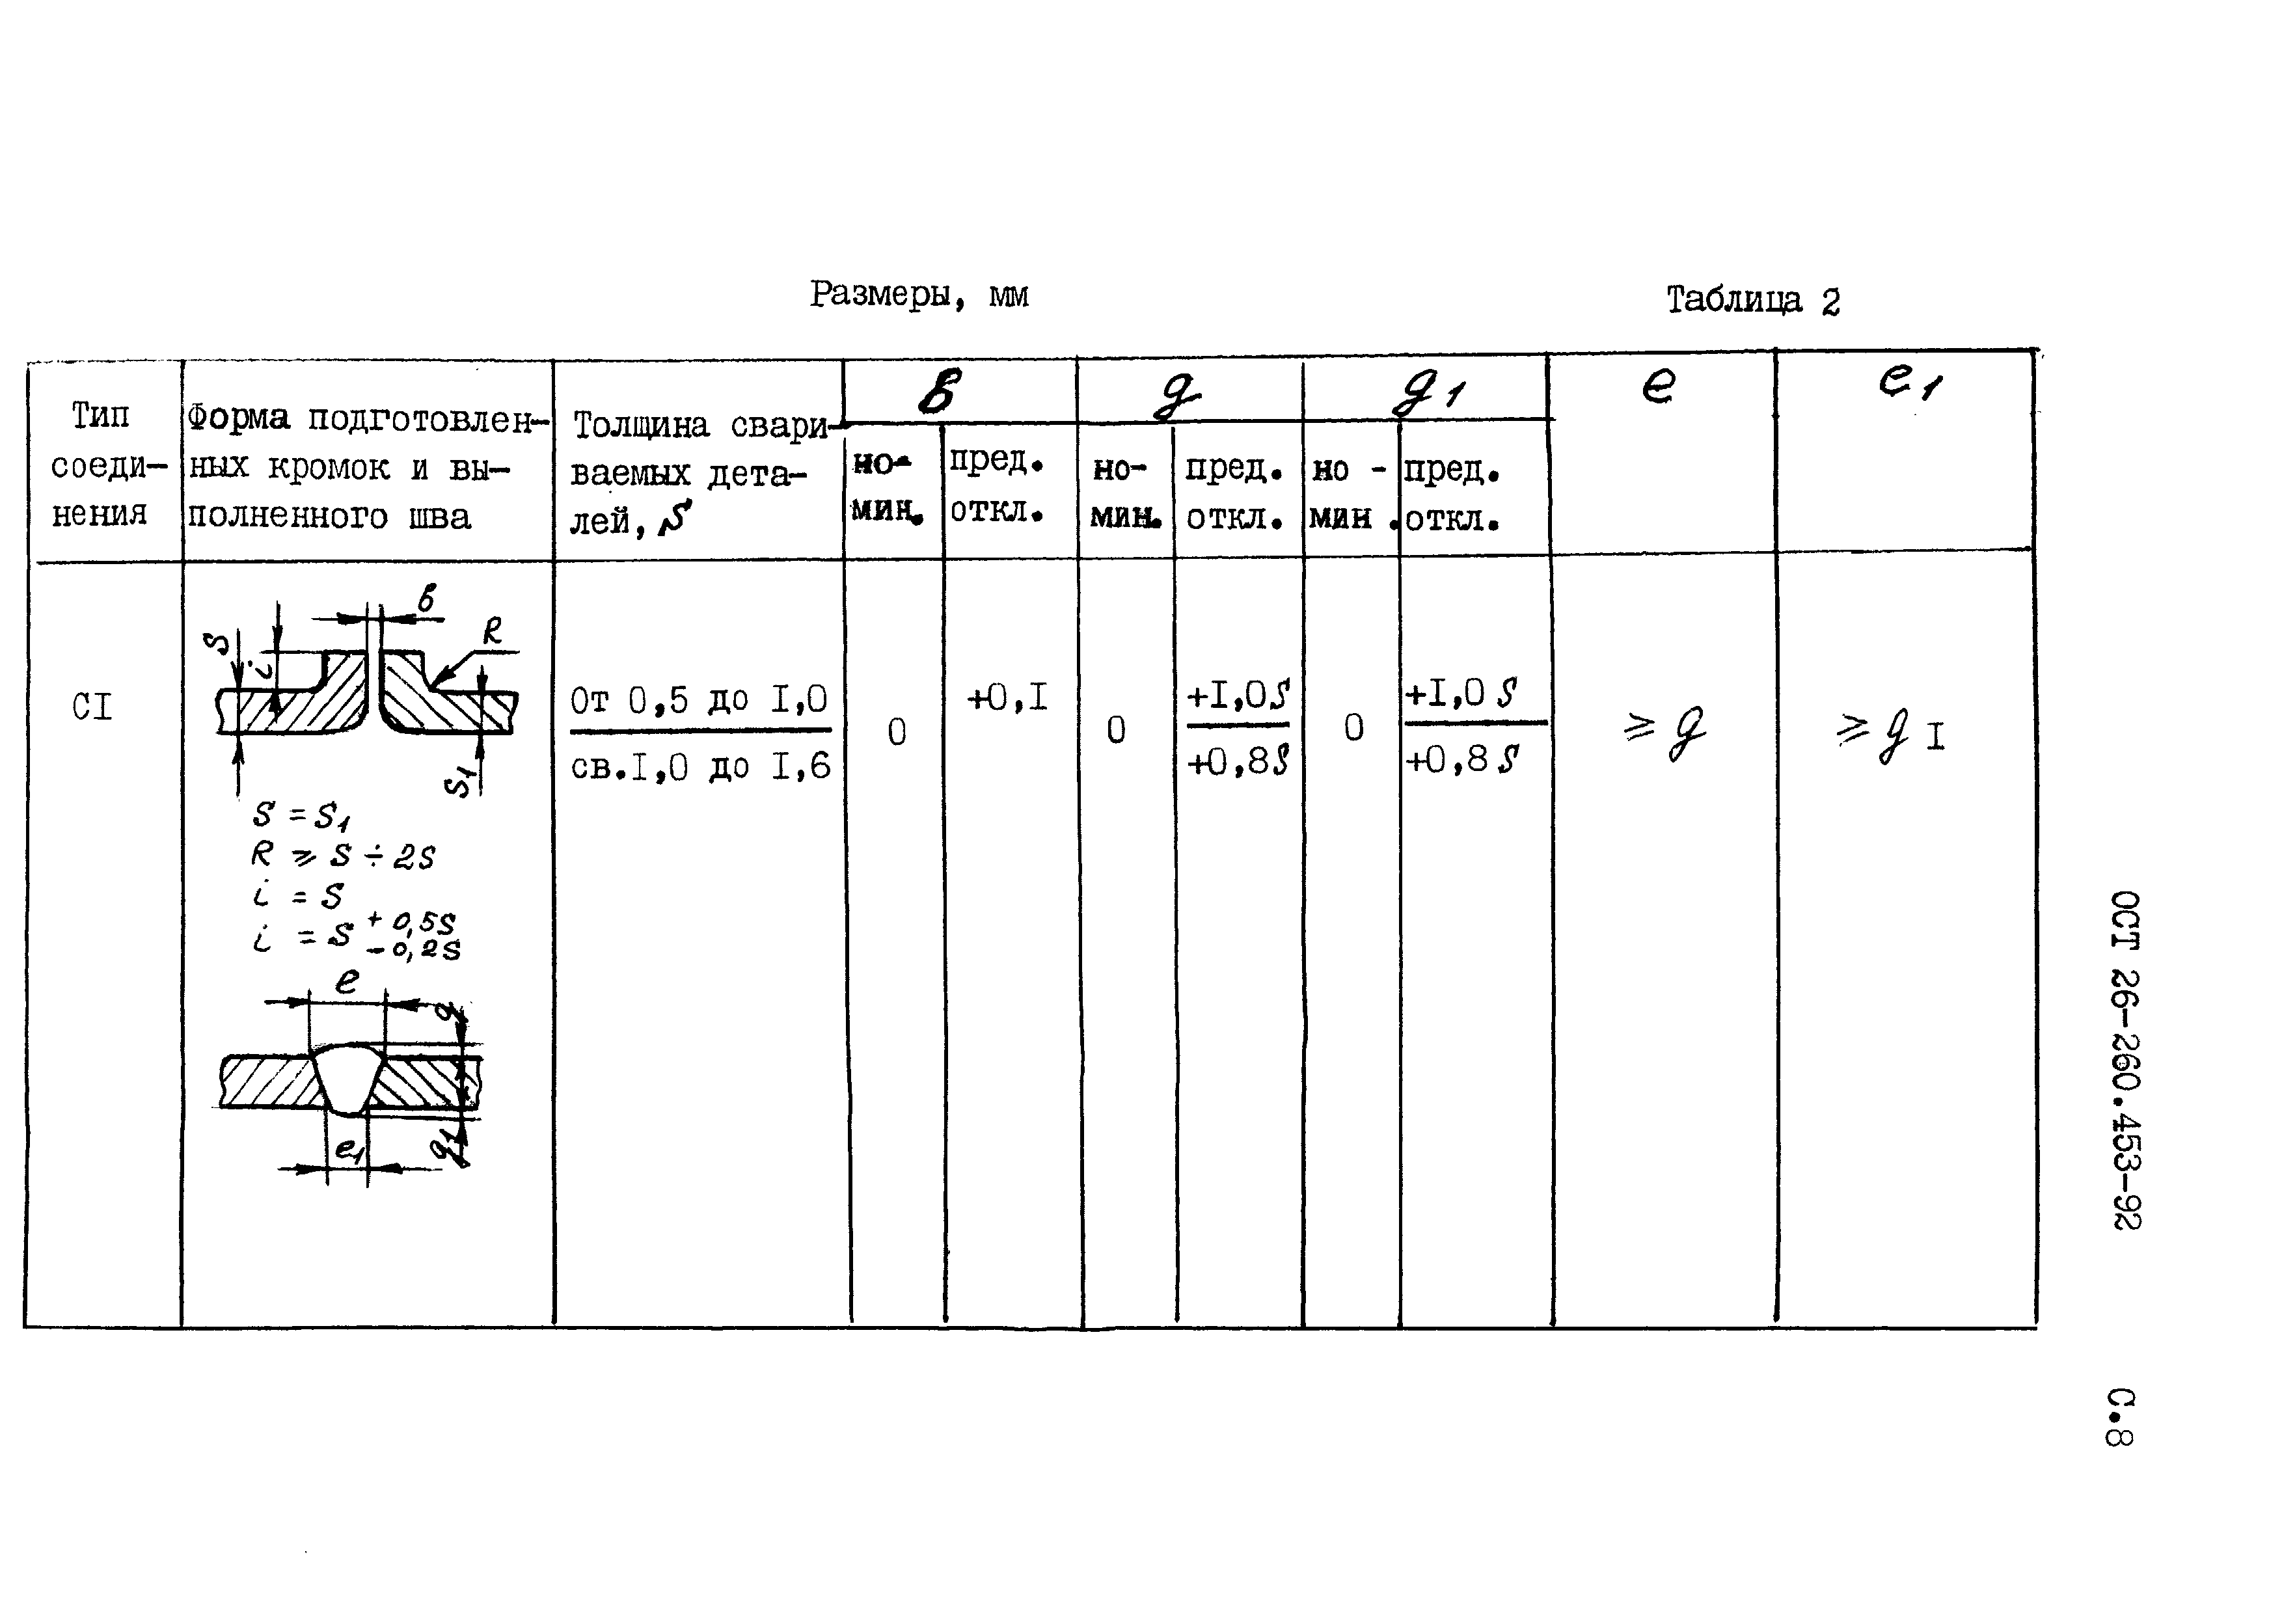 Размеры, мм
Таблица 2
Тип
соеди-
нения
Форма подготовлен-
ных кромок и вы-
полненного шва
Толщина свари-
ваемых дета-
лей, S
в
но-
мин.
пред.
откл.
g
но-
мин.
пред.
откл.
g1
но -
мин .
пред.
откл.
e
e1
CI
в
R
S
i
S1
S = S1
R ⩾ S ÷ 2S
i = S
i = S + 0,5S
- 0,2S
e
g
e1
g1
От 0,5 до I,0
св.I,0 до I,6
0
+0,I
0
+I,0S
+0,8S
0
+I,0 S
+0,8 S
⩾ g
⩾ g I
ОСТ 26-260.453-92
С.8